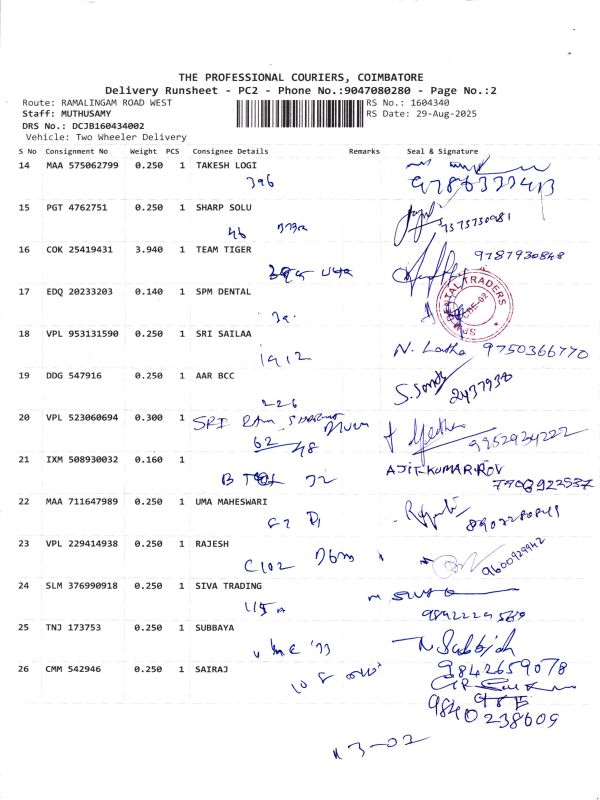 THE PROFESSIONAL COURIERS, COIMBATORE
Delivery Runsheet - PC2 - Phone No.:9047080280 - Page No.:2
Route: RAMALINGAM ROAD WEST RS No.: 1604340
Staff: MUTHUSAMY RS Date: 29-Aug-2025
DRS No.: DCJB160434002
Vehicle: Two Wheeler Delivery
S No Consignment No Weight PCS Consignee Details Remarks Seal & Signature
14 MAA 575062799 0.250 1 TAKESH LOGI
396
15 PGT 4762751 0.250 1 SHARP SOLU
46 7373730981
16 COK 25419431 3.940 1 TEAM TIGER
9787930848
17 EDQ 20233203 0.140 1 SPM DENTAL
SPM DENTAL TRADERS CBE-02
18 VPL 953131590 0.250 1 SRI SAILAA
1912 N. Latha 9750366770
19 DDG 547916 0.250 1 AAR BCC
226 2437938
20 VPL 523060694 0.300 1 SRI RAM
62 48 9952934222
21 IXM 508930032 0.160 1 AJIT KUMAR ROV
B 32 7908922537
22 MAA 711647989 0.250 1 UMA MAHESWARI
8902280841
23 VPL 229414938 0.250 1 RAJESH
C102 9600929942
24 SLM 376990918 0.250 1 SIVA TRADING
115 A
25 TNJ 173753 0.250 1 SUBBAYA
N Subbiah
26 CMM 542946 0.250 1 SAIRAJ 9842659078
108
9840238609
3-02